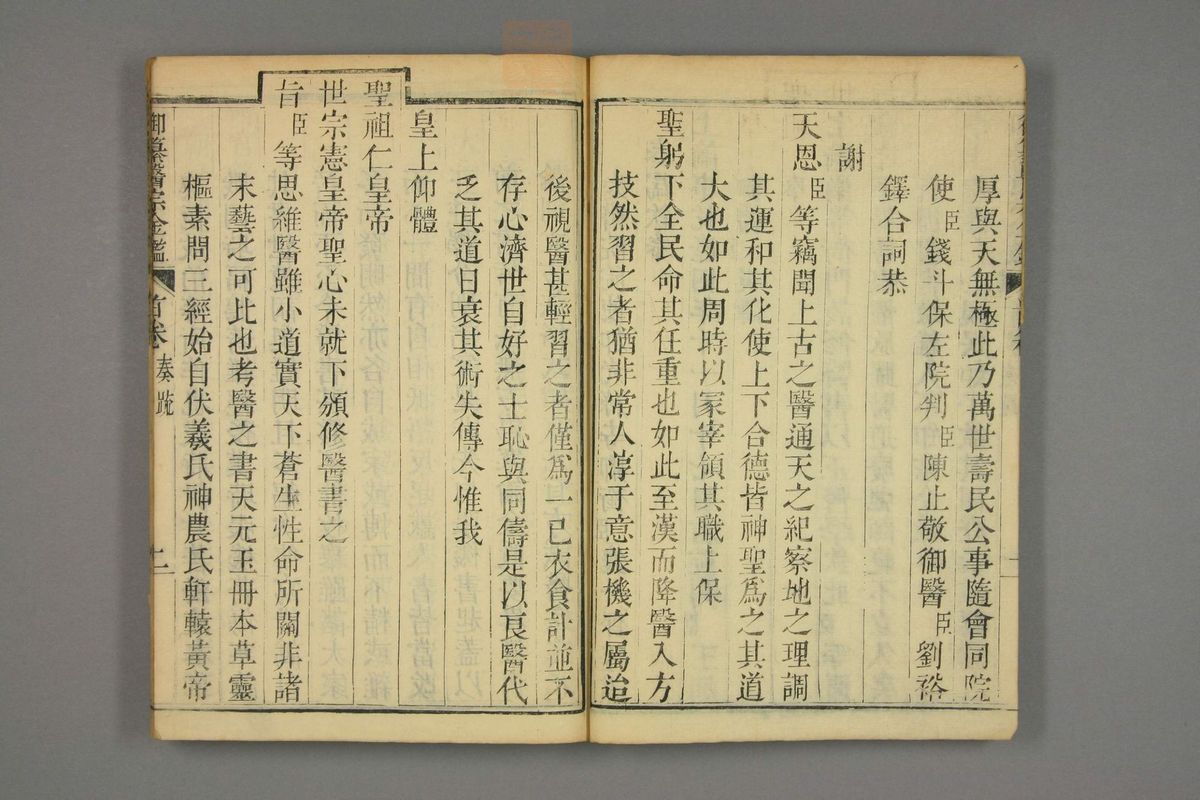 厚與天無極此乃萬世壽民公事隨會同院
使臣錢斗保左院判臣陳止敬御醫臣劉裕
鐸合詞恭
謝
天恩臣等竊聞上古之醫通天之紀察地之理調
其運和其化使上下合德皆神聖爲之其道
大也如此周時以冢宰領其職上保
聖躬下全民命其任重也如此至漢而降醫入方
技然習之者猶非常人淳于意張機之屬迨
後視醫甚輕習之者僅爲一己衣食計並不
存心濟世自好之士恥與同儔是以良醫代
乏其道日衰其術失傳今惟我
皇上仰體
聖祖仁皇帝
世宗憲皇帝聖心未就下頒修醫書之
旨臣等思維醫雖小道實天下蒼生性命所關非諸
末藝之可比也考醫之書天元玉冊本草靈
樞素問三經始自伏羲氏神農氏軒轅黃帝
御纂醫宗金鑑
首卷
奏疏
二